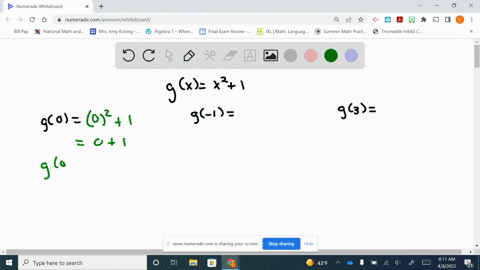 Numerade Whiteboard
numerade.com/answers/whiteboard/
Bill Pay
National Math and...
Mrs. Amy Koning -...
Algebra 1 – When...
Final Exam Review -...
IXL | Math, Languag...
Summer Math Pract...
g(x) = x² + 1
g(0) = (0)² + 1
g(-1) =
g(3) =
= 0 + 1
g(0
www.numerade.com is sharing your screen.
Stop sharing
Hide
Type here to search
42°F
8:11 AM
4/8/2022